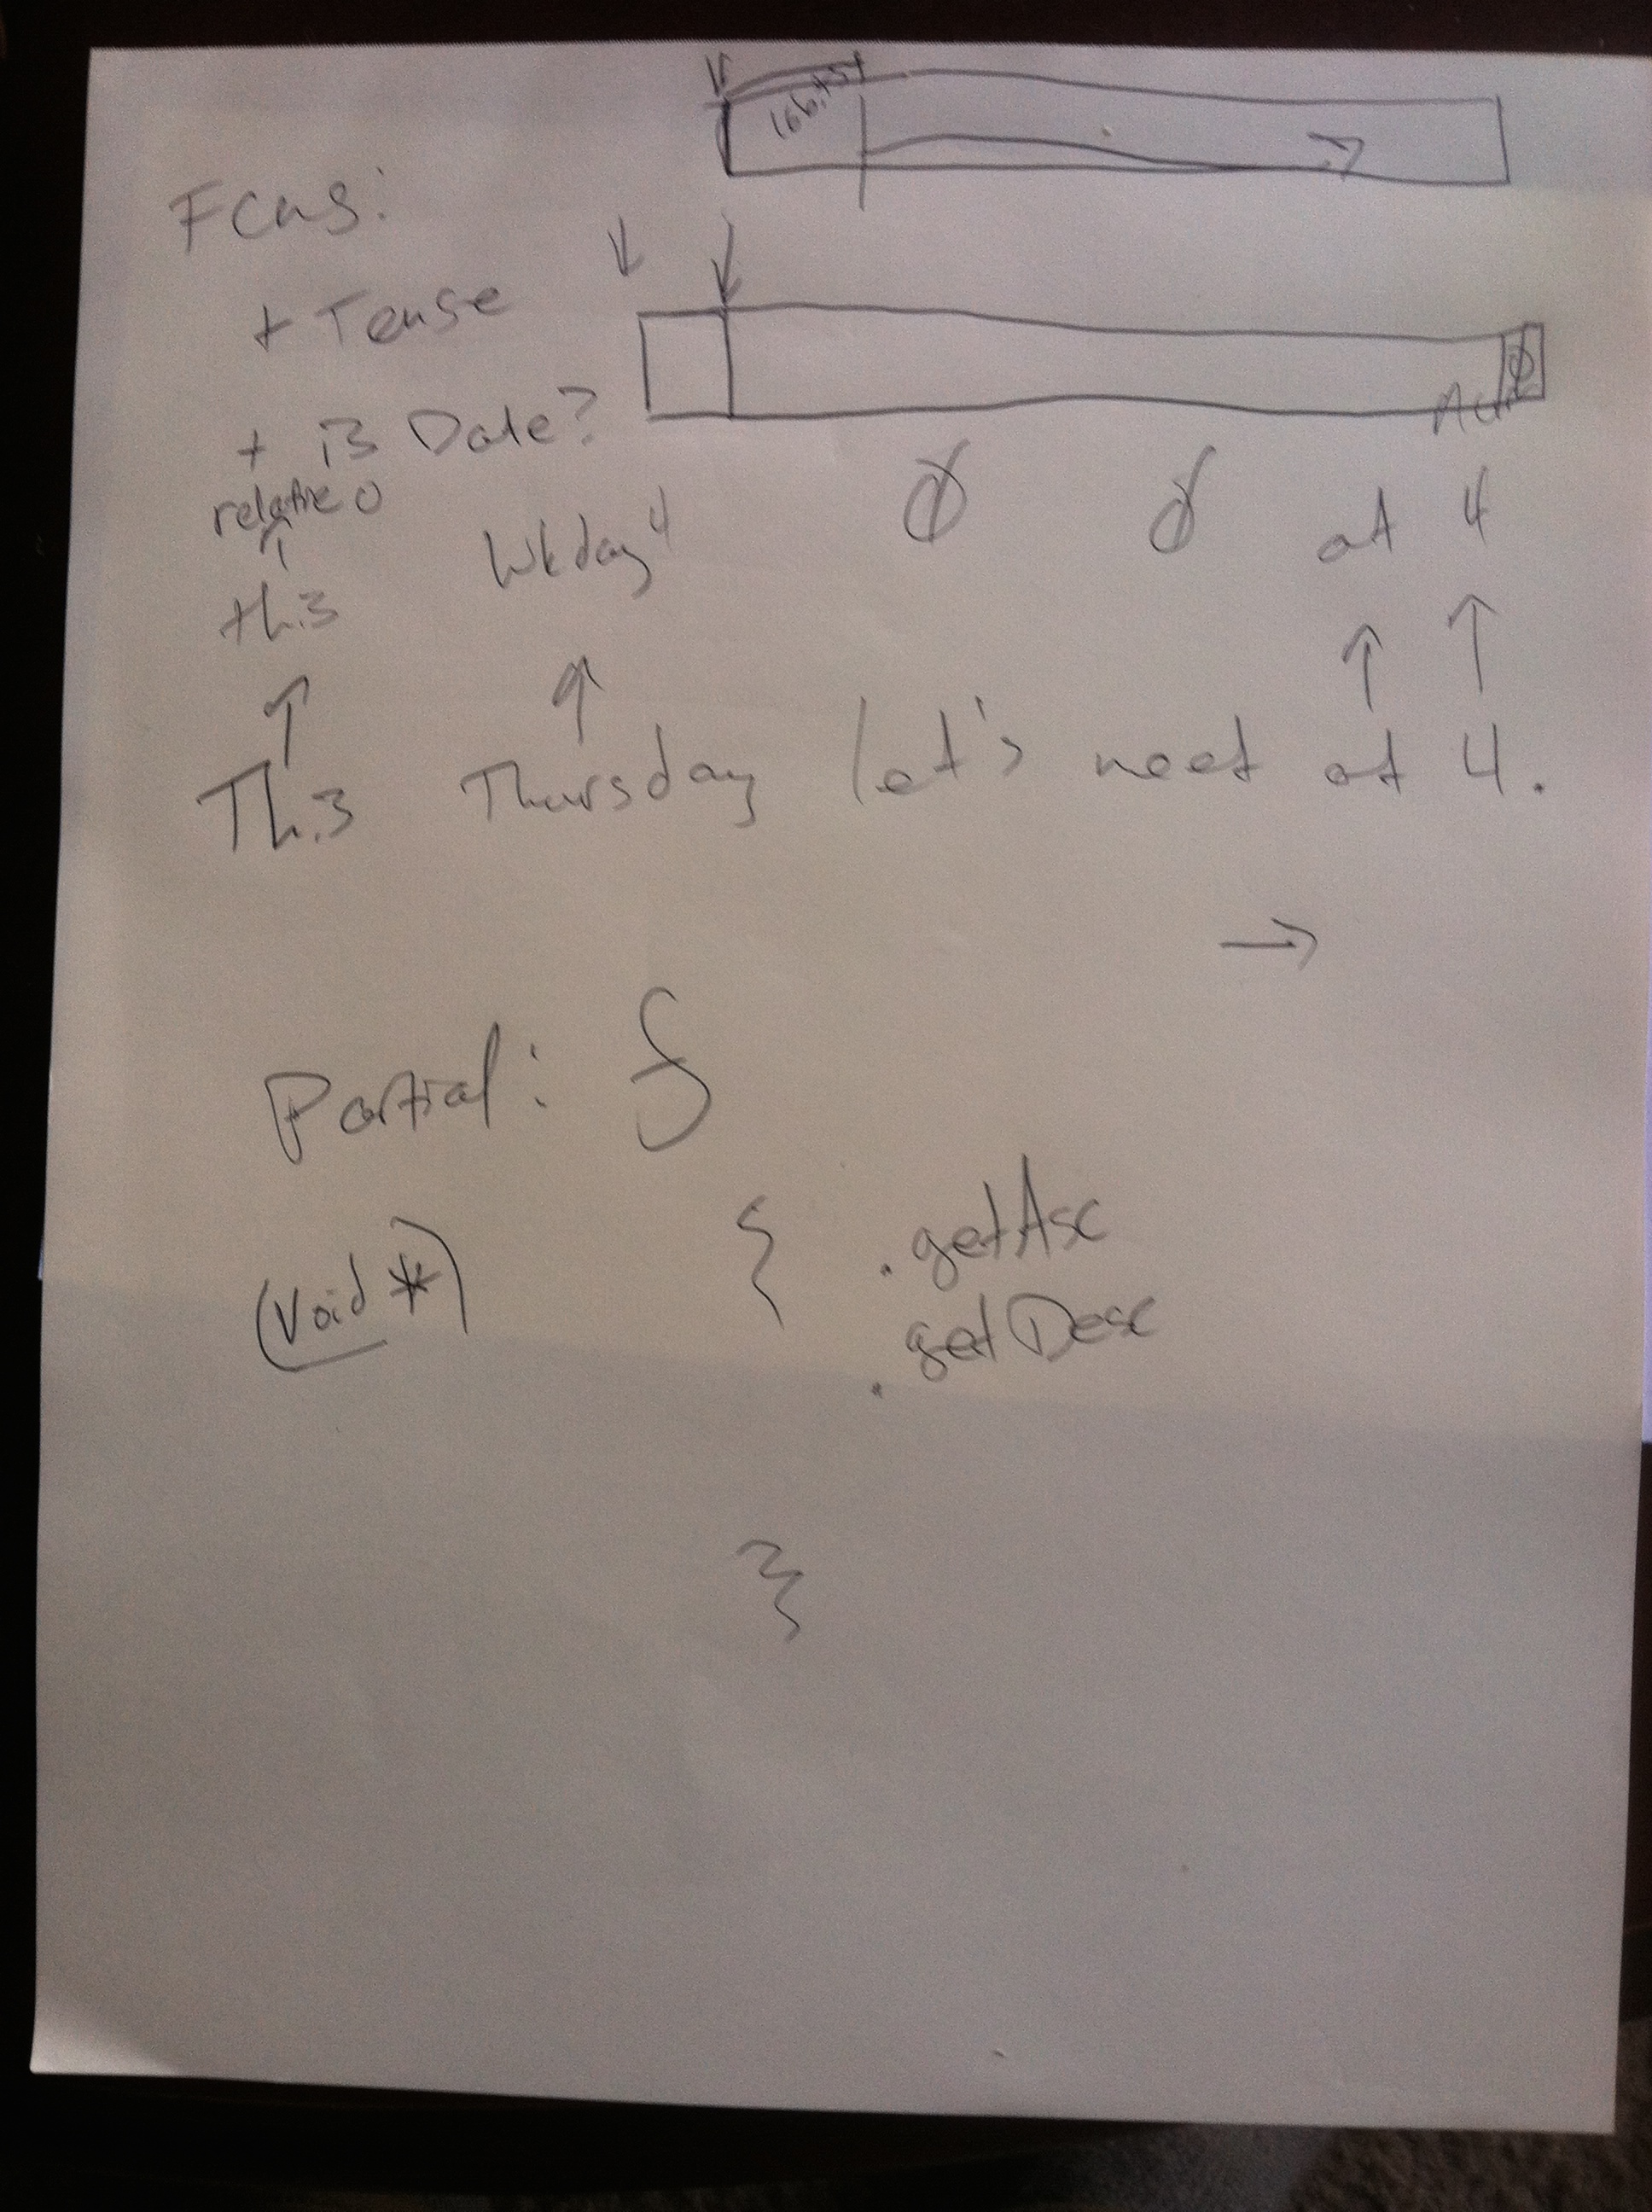 Fcns:
+ Tense
+ is Date?
relative 0
this Wkday 4 Ø Ø at 4
This Thursday let's meet at 4.
Partial: {
(void *) { . getAsc
. getDesc
}